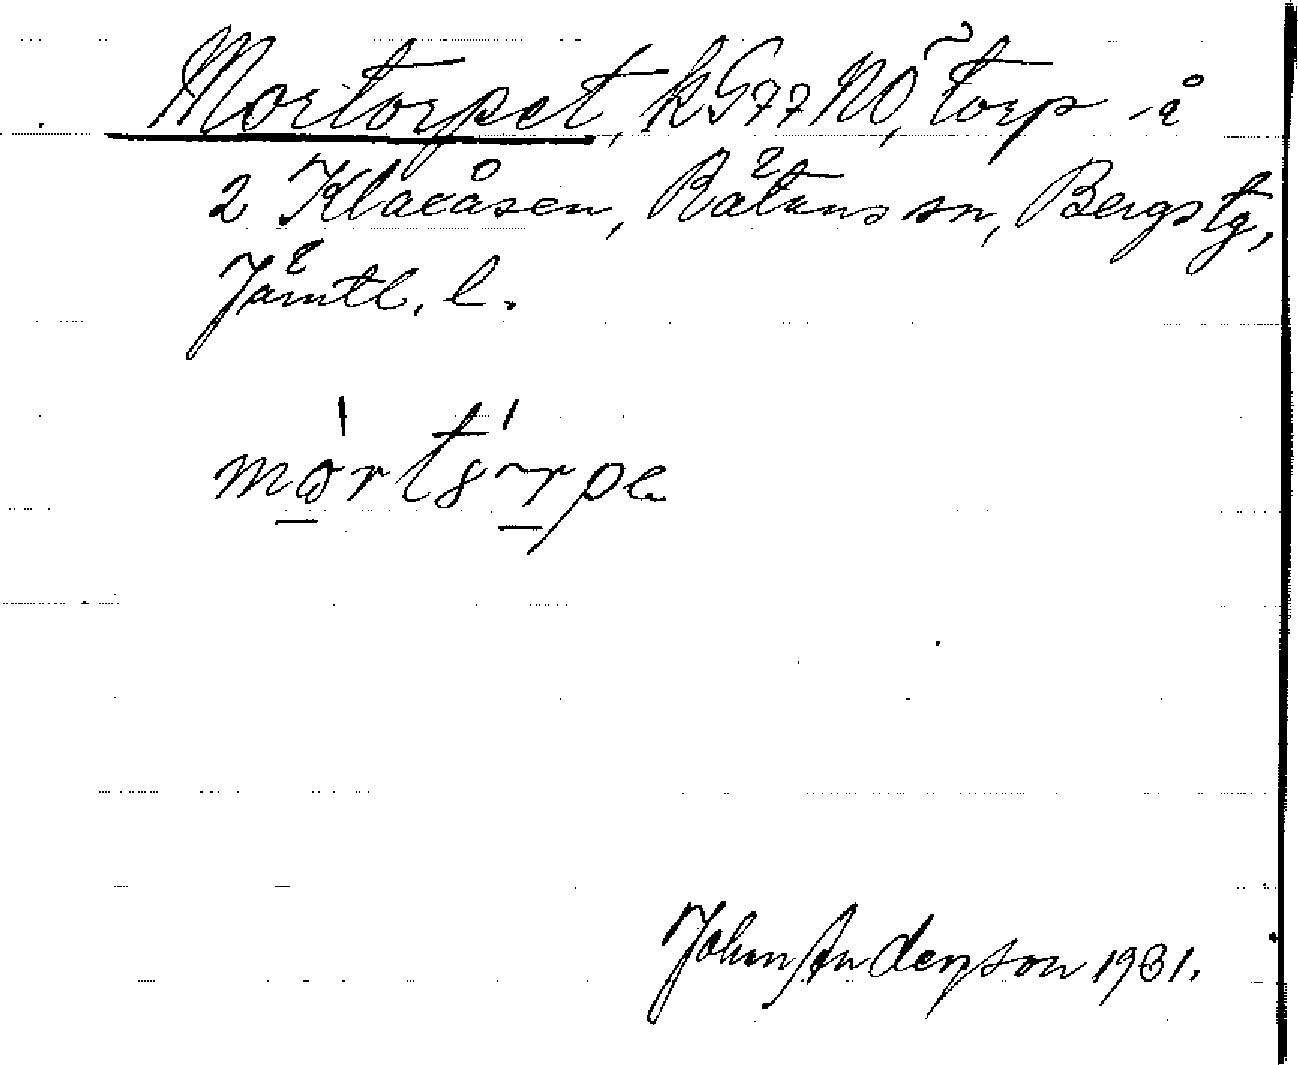 Mortorpet, kG77NO, torp i
2 Klaxåsen, Rätans sn, Bergs tg,
Jämtl. l.
John Anderson 1931.